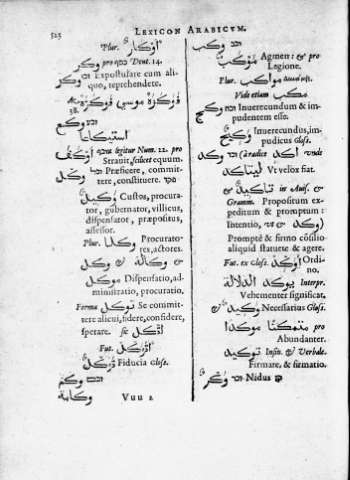 525 LEXICON ARABICVM.
Plur. اوكار
وكر pro نكر Deut. 14.
وكر Expostulare cum ali-
quo, reprehendere.
فوكزه موسى فوكزة
38.
وكع
استيكاعا
اوكف legitur Num. 22. pro
Strauit, scilicet equum.
وكل Præficere, commit-
tere, constituere.
وكيل Custos, procura-
tor, gubernator, villicus,
dispensator, præpositus,
assessor.
Plur. وكلا Procurato-
res, actores.
وكالة & وكل
موكل Dispensatio, ad-
ministratio, procuratio.
Forma توكل Se commit-
tere alicui, fidere, confidere,
sperare. sic اتكل
Fut. اتوكل
توكل Fiducia Glos.
وكم
وكامة
Vuu 2
وكب
موكب Agmen: & pro
Legione.
Plur. مواكب
Vide etiam مكب
وكح Inuerecundum & im-
pudentem esse.
وكيح Inuerecundus, im-
pudicus Glos.
وكد (à radice اكد vnde
ليتاكد Vt velox fiat.
تاكيد in Auis. &
Gramm. Propositum ex-
peditum & promptum:
Intentio, (& وكد
Promptè & firmo cõsilio
aliquid statuere & agere.
Fut. ex Glos. اوكد Ordi-
no.
يوكد الدلالة Interpr.
Vehementer significat.
وكيد & Necessarius Glos.
موكدا pro
Abundanter.
توكيد Infin. & Verbale.
Firmare, & firmatio.
وكر Nidus &